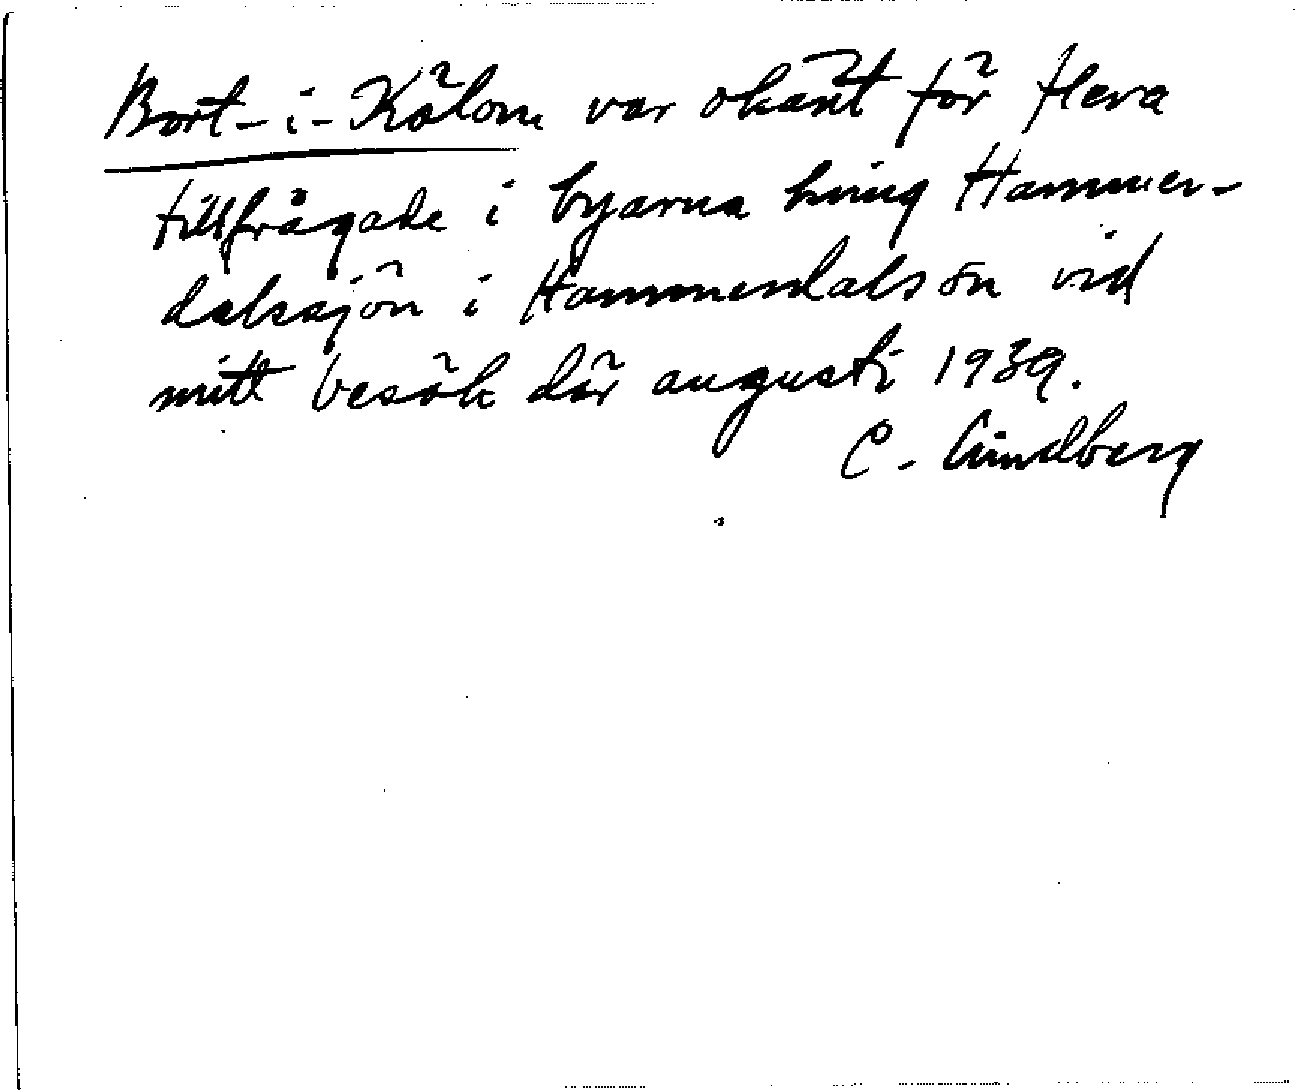 Bort-i-Kölom var okänt för flera
tillfrågade i byarna kring Hammer-
dalssjön i Hammerdals sn vid
mitt besök där augusti 1939.
C. Lindberg